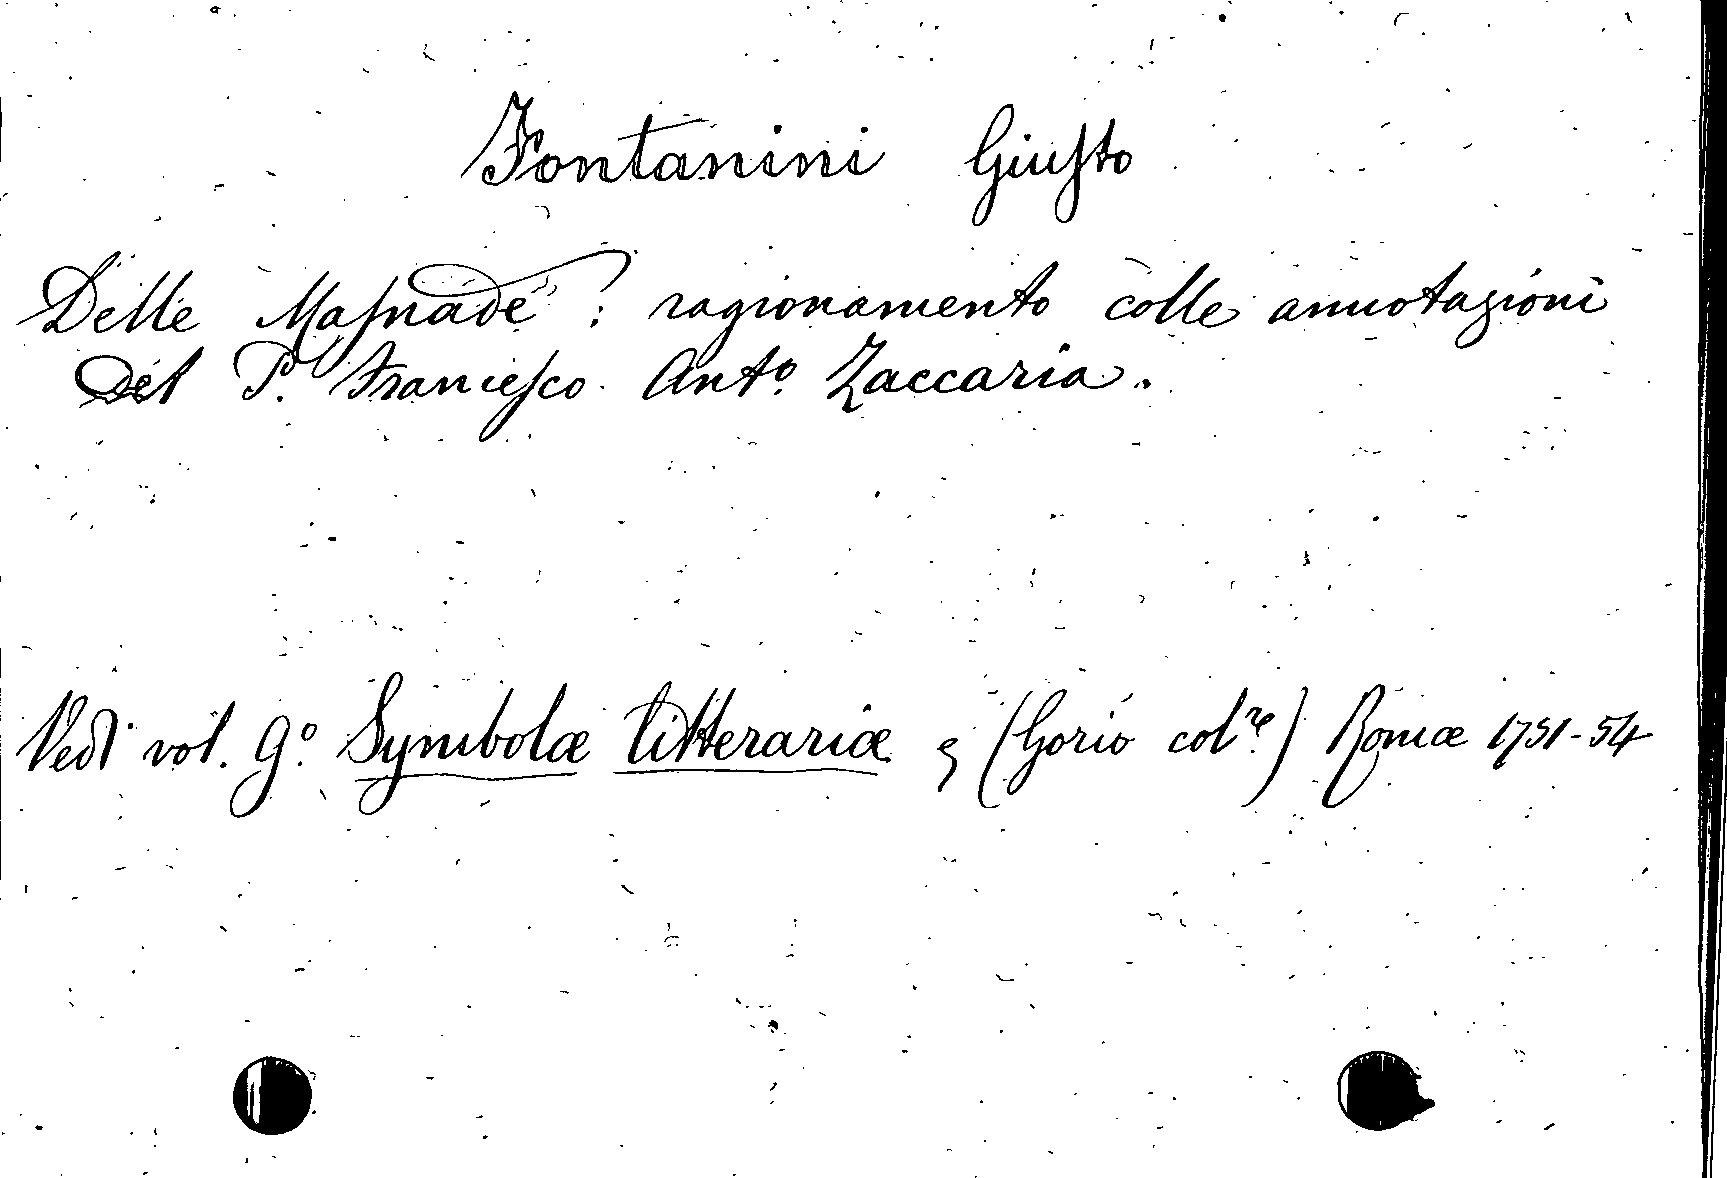 Fontanini Giusto
Delle Masnade : ragionamento colle annotazioni
del P. Francesco Anto. Zaccaria.
Vedi vol. 9º. Symbolæ litterariæ, (Gorio colre.) Romæ 1751-54